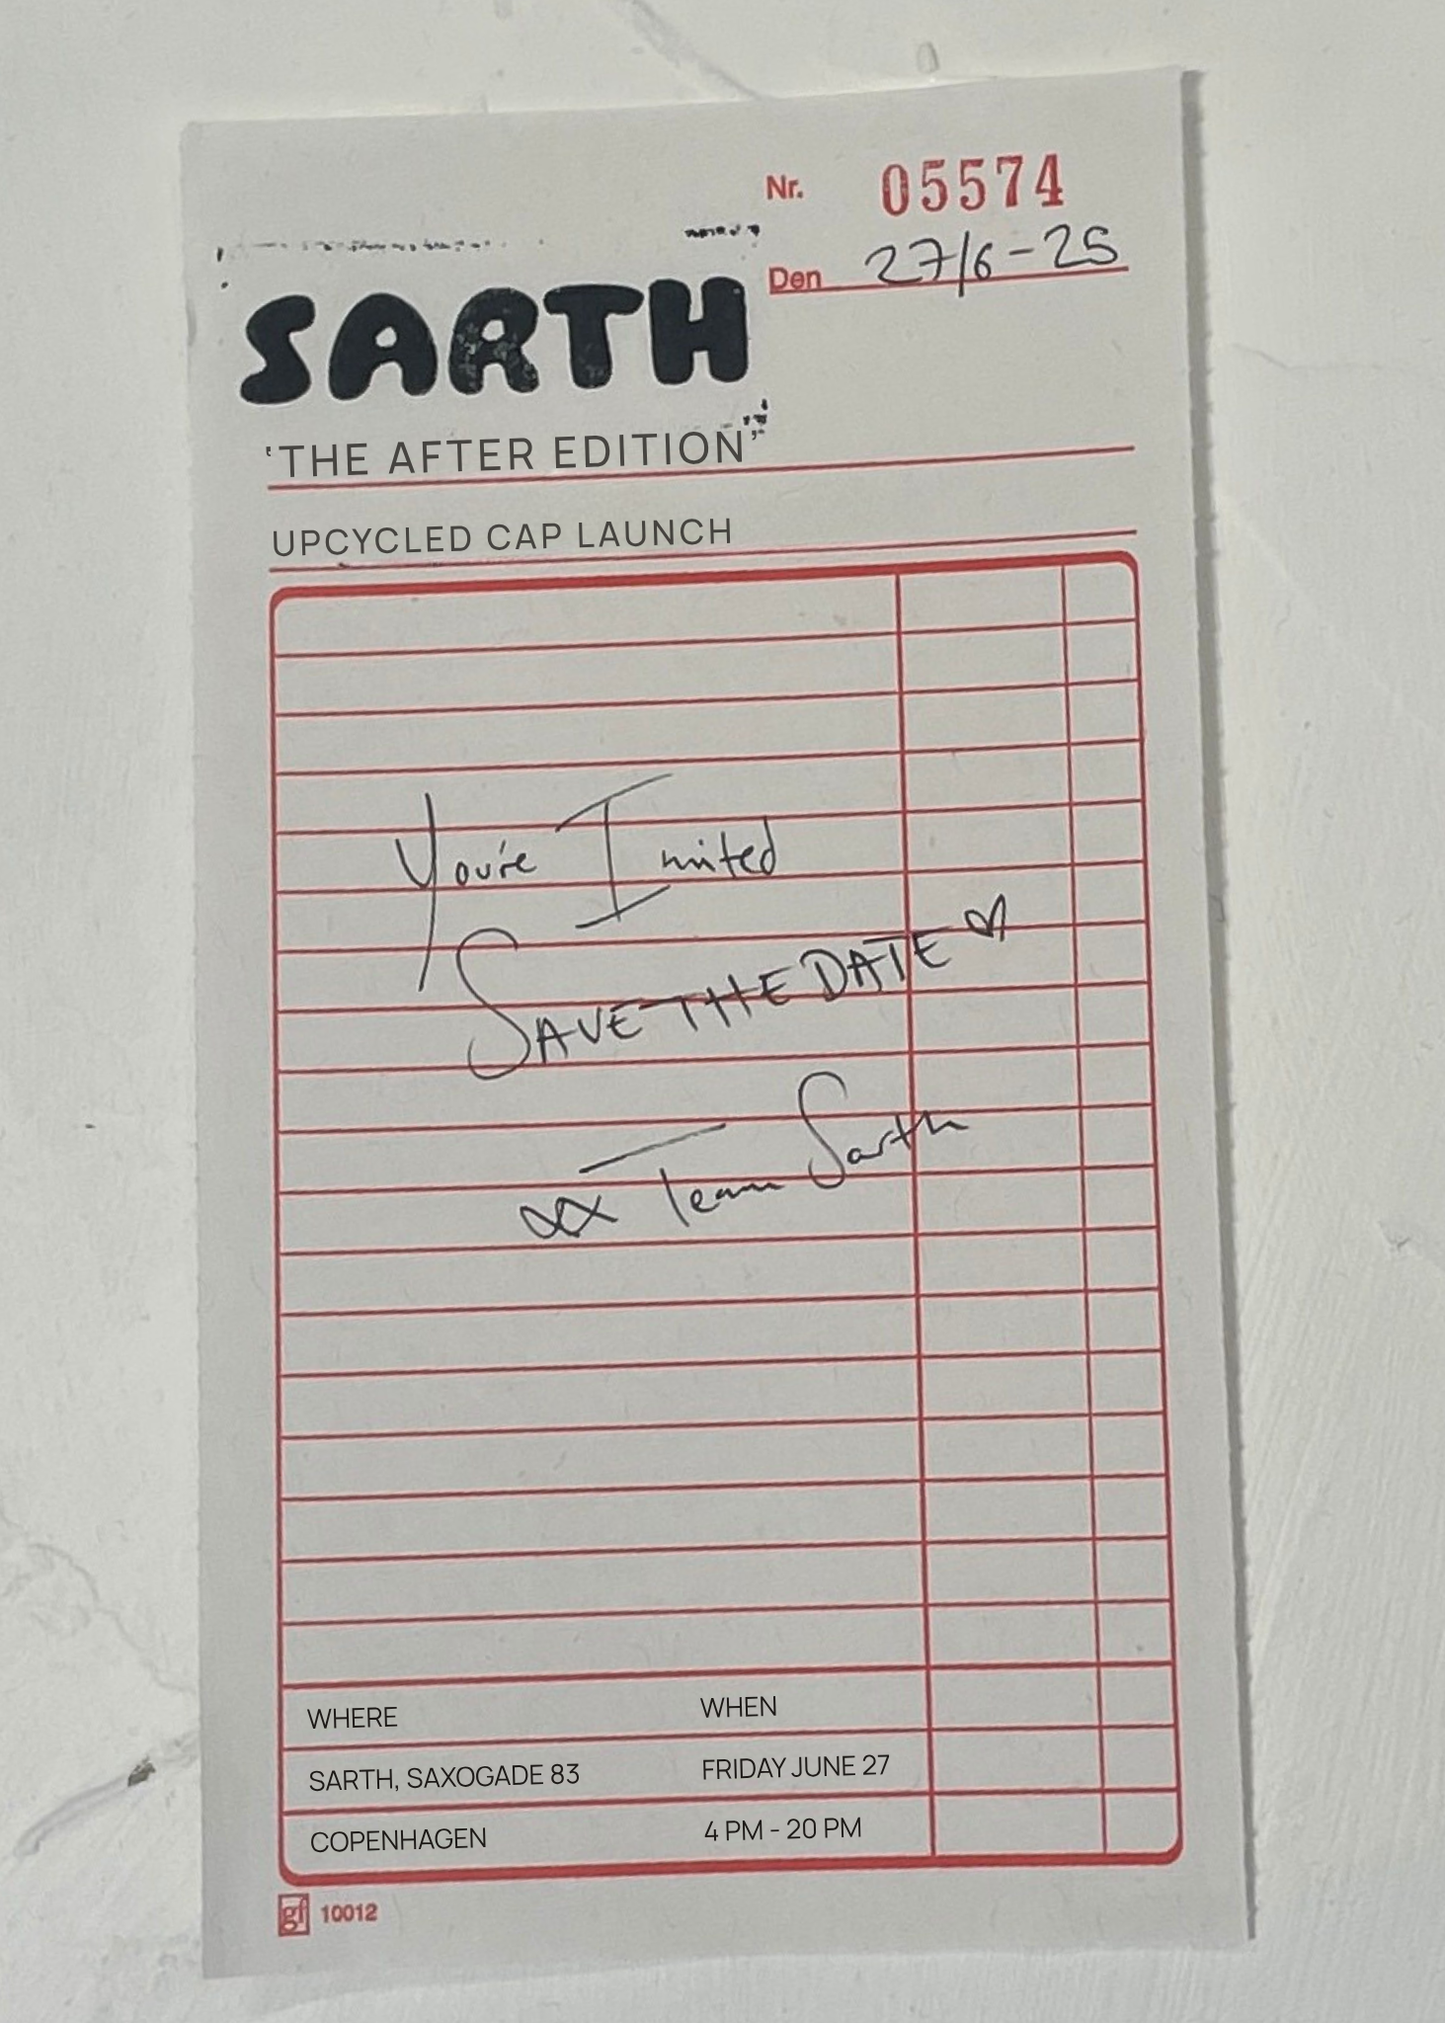 Nr. 05574
Den 27/6-25
SARTH
'THE AFTER EDITION'
UPCYCLED CAP LAUNCH
You're Invited
SAVE THE DATE ♡
xx Team Sarth
WHERE WHEN
SARTH, SAXOGADE 83 FRIDAY JUNE 27
COPENHAGEN 4 PM - 20 PM
gf 10012